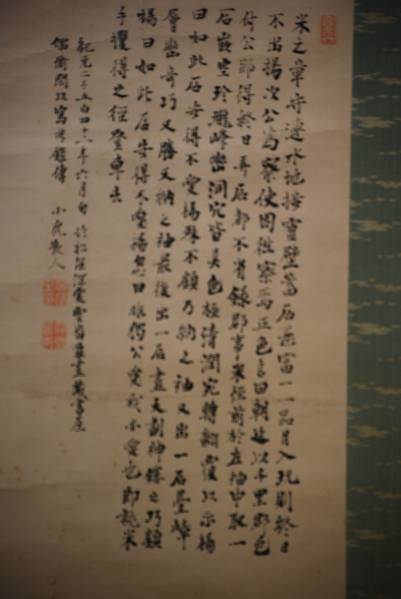 米元章守漣水地接靈璧蓄石甚富一一品目入玩則終日
不出楊次公為察使因往察焉正色言曰朝廷以千里郡邑
付公那得終日弄石都不省錄郡事米徑前於左袖中取一
石嵌空玲瓏峰巒洞穴皆具色極清潤宛轉翻覆以示楊
曰如此石安得不愛楊殊不顧乃納之袖又出一石疊嶂
層巒奇巧又勝又納之袖最後出一石盡天劃神鏤之巧顧
楊曰如此石安得不愛楊忽曰非獨公愛我亦愛也即就米
手攫得之徑登車去
紀元二千五百四十三年六月
小虎散人